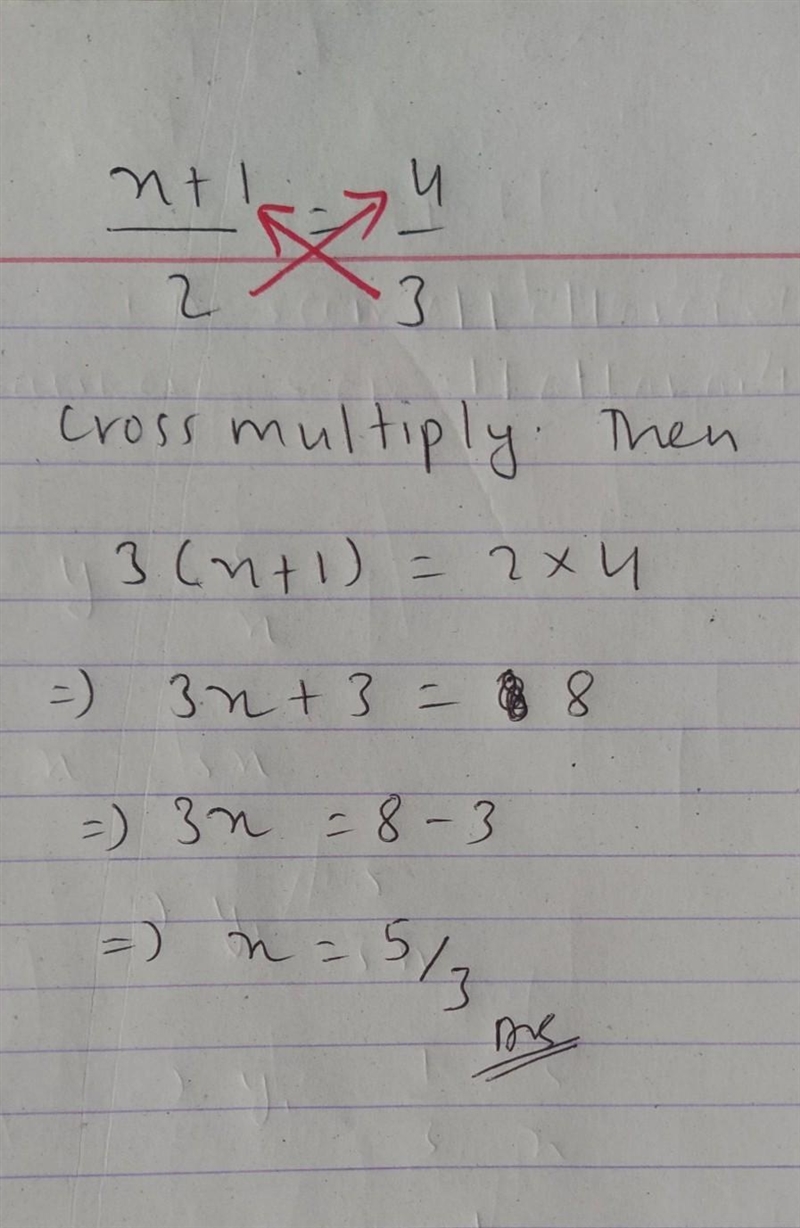 x+1 = 4
2 3
Cross multiply. Then
3(x+1) = 2×4
=) 3x+3 = 8
=) 3x = 8-3
=) x = 5/3
Ans